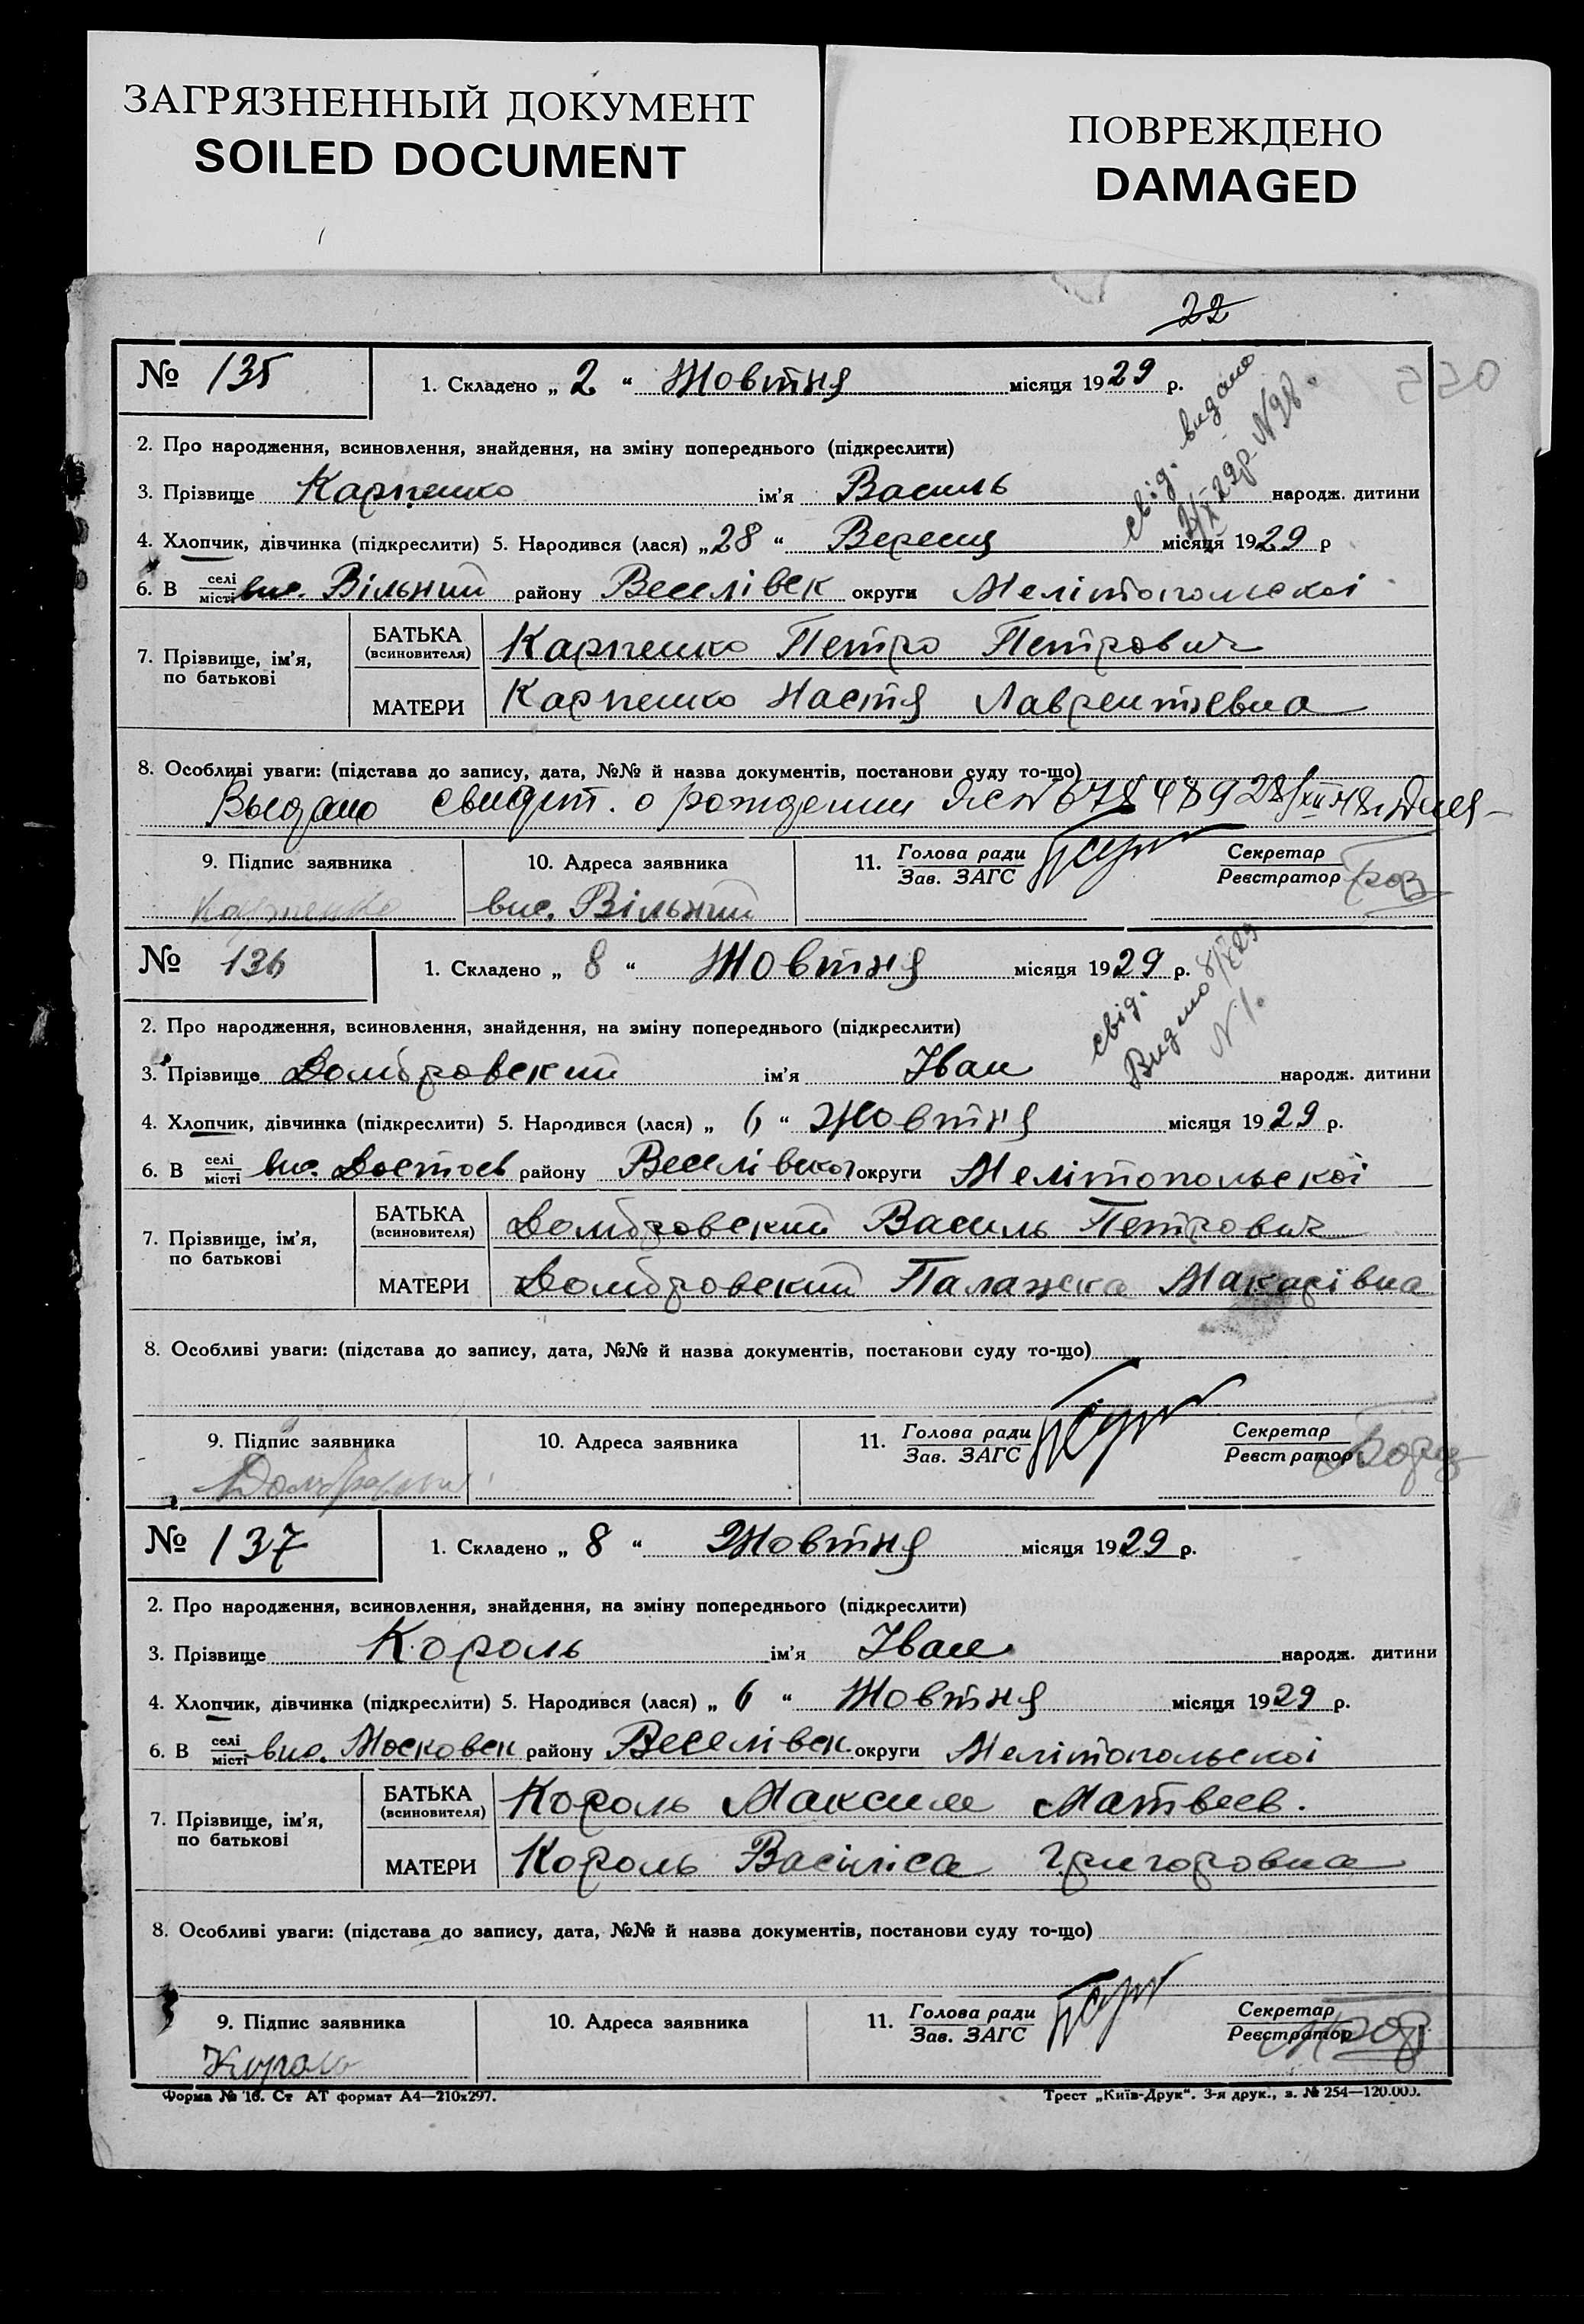 ЗАГРЯЗНЕННЫЙ ДОКУМЕНТ
SOILED DOCUMENT
ПОВРЕЖДЕНО
DAMAGED
22
550
№ 135
1. Складено „ 2 “ Жовтня місяця 1929 р.
свід. видано
2/X-29р. N98.
2. Про народження, всиновлення, знайдення, на зміну попереднього (підкреслити)
3. Прізвище Карпенко ім’я Василь народж. дитини
4. Хлопчик, дівчинка (підкреслити) 5. Народився (лася) „ 28 “ Вересня місяця 1929 р
6. В селі/місті вис. Вільний району Веселівск округи Мелітопольскоі
7. Прізвище, ім’я, по батькові
БАТЬКА (всиновителя) Карпенко Петро Петрович
МАТЕРИ Карпенко Настя Лаврентьевна
8. Особливі уваги: (підстава до запису, дата, №№ й назва документів, постанови суду то-що)
Выдано свидет. о рождении
9. Підпис заявника 10. Адреса заявника 11. Голова ради/Зав. ЗАГС Секретар/Реєстратор
Карпенко вис. Вільний
№ 136
1. Складено „ 8 “ Жовтня місяця 1929 р.
свід.
Видано 8/X29
N1.
2. Про народження, всиновлення, знайдення, на зміну попереднього (підкреслити)
3. Прізвище Домбровский ім’я Іван народж. дитини
4. Хлопчик, дівчинка (підкреслити) 5. Народився (лася) „ 6 “ Жовтня місяця 1929 р.
6. В селі/місті вис. Достоєв району Веселівскоі округи Мелітопольскоі
7. Прізвище, ім’я, по батькові
БАТЬКА (всиновителя) Домбровский Василь Петрович
МАТЕРИ Домбровский Палажка Макарівна
8. Особливі уваги: (підстава до запису, дата, №№ й назва документів, постанови суду то-що)
9. Підпис заявника 10. Адреса заявника 11. Голова ради/Зав. ЗАГС Секретар/Реєстратор
№ 137
1. Складено „ 8 “ Жовтня місяця 1929 р.
2. Про народження, всиновлення, знайдення, на зміну попереднього (підкреслити)
3. Прізвище Король ім’я Іван народж. дитини
4. Хлопчик, дівчинка (підкреслити) 5. Народився (лася) „ 6 “ Жовтня місяця 1929 р.
6. В селі/місті вис. Московск району Веселівск. округи Мелітопольскоі
7. Прізвище, ім’я, по батькові
БАТЬКА (всиновителя) Король Максим Матвеєв.
МАТЕРИ Король Васіліса Григоровна
8. Особливі уваги: (підстава до запису, дата, №№ й назва документів, постанови суду то-що)
9. Підпис заявника 10. Адреса заявника 11. Голова ради/Зав. ЗАГС Секретар/Реєстратор
Король
Форма № 16. Ст АТ формат А4—210х297.
Трест „Київ-Друк“. 3-я друк., з. № 254—120.000.